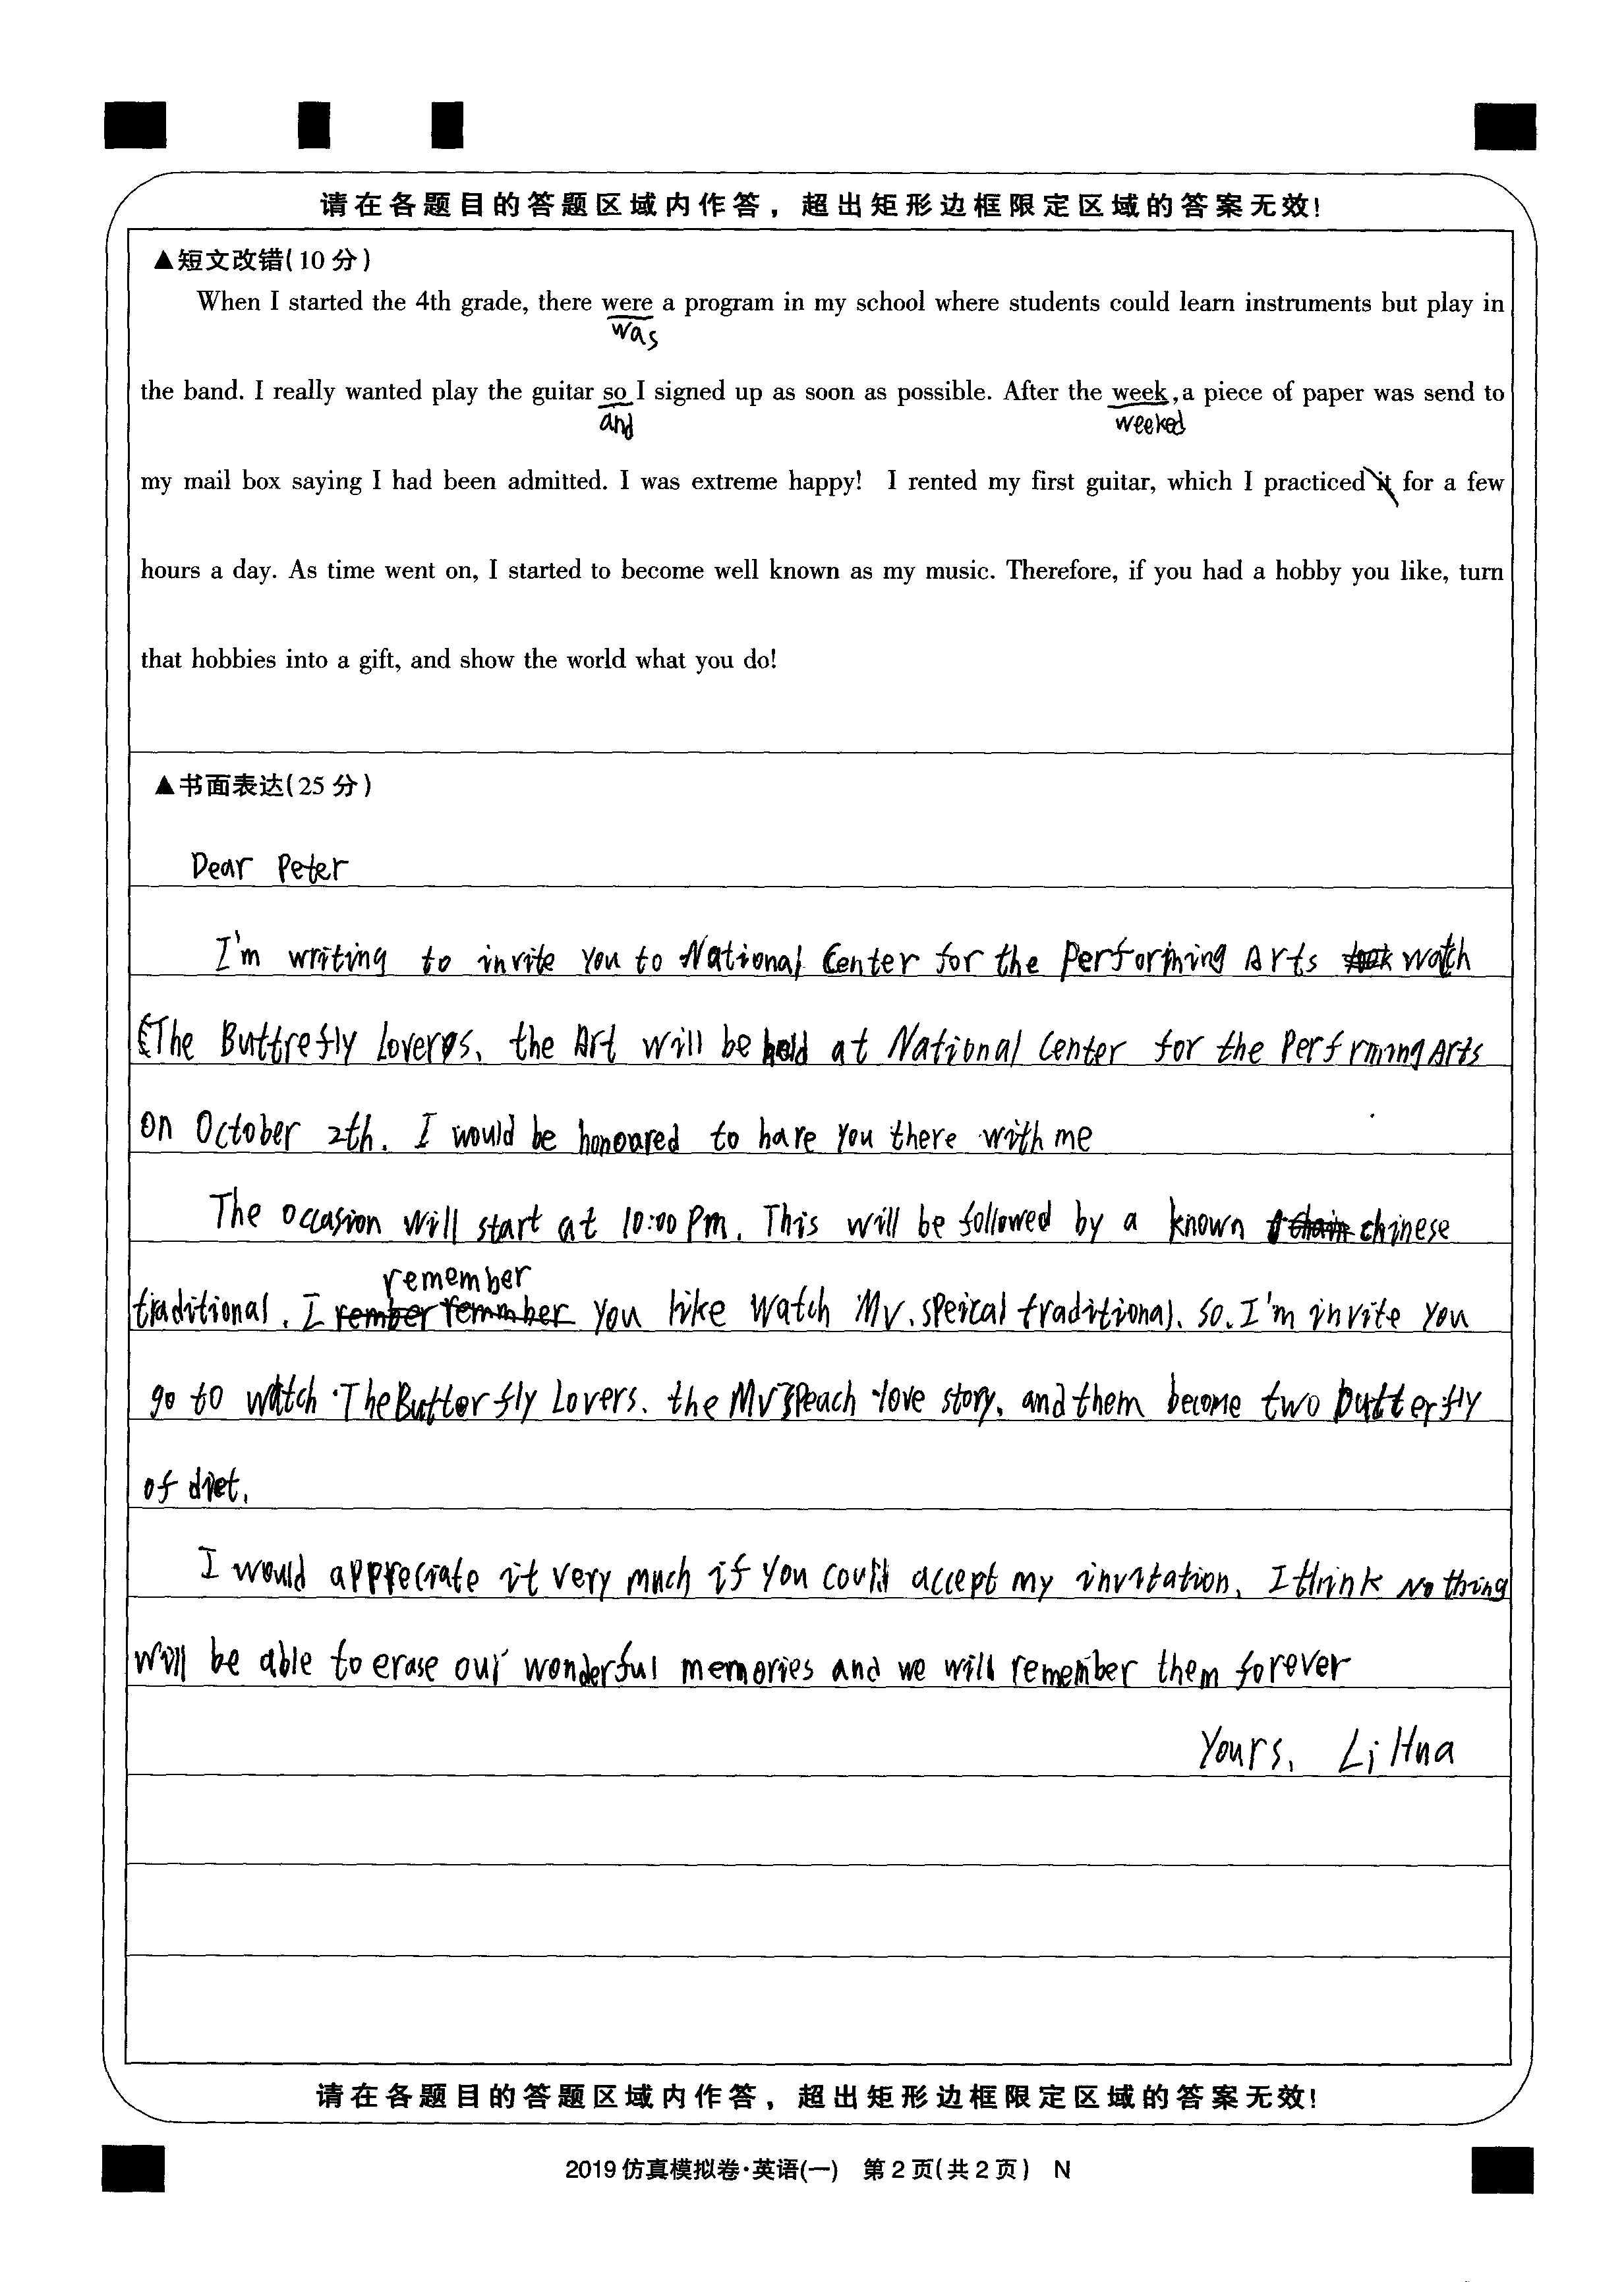 请在各题目的答题区域内作答，超出矩形边框限定区域的答案无效!
▲短文改错(10分)
When I started the 4th grade, there were a program in my school where students could learn instruments but play in
was
the band. I really wanted play the guitar so I signed up as soon as possible. After the week,a piece of paper was send to
and weeked
my mail box saying I had been admitted. I was extreme happy! I rented my first guitar, which I practiced it for a few
hours a day. As time went on, I started to become well known as my music. Therefore, if you had a hobby you like, turn
that hobbies into a gift, and show the world what you do!
▲书面表达(25分)
Dear Peter
I'm writing to invite you to National Center for the Performing Arts watch
《The Buttrefly Lovers. the Art will be held at National Center for the Perfrming Arts
on October 2th. I would be honoured to have you there with me
The occasion will start at 10:00 Pm. This will be followed by a known chinese
remember
traditional. I you like watch Mv. speical traditional. so. I'm invite you
go to watch The Butterfly Lovers. the MV speach love story. and them become two butterfly
of diet.
I would appreciate it very much if you could accept my invitation. I think Nothing
will be able to erase our wonderful memories and we will remember them forever
Yours. Li Hua
请在各题目的答题区域内作答，超出矩形边框限定区域的答案无效!
2019仿真模拟卷·英语(一) 第2页(共2页) N